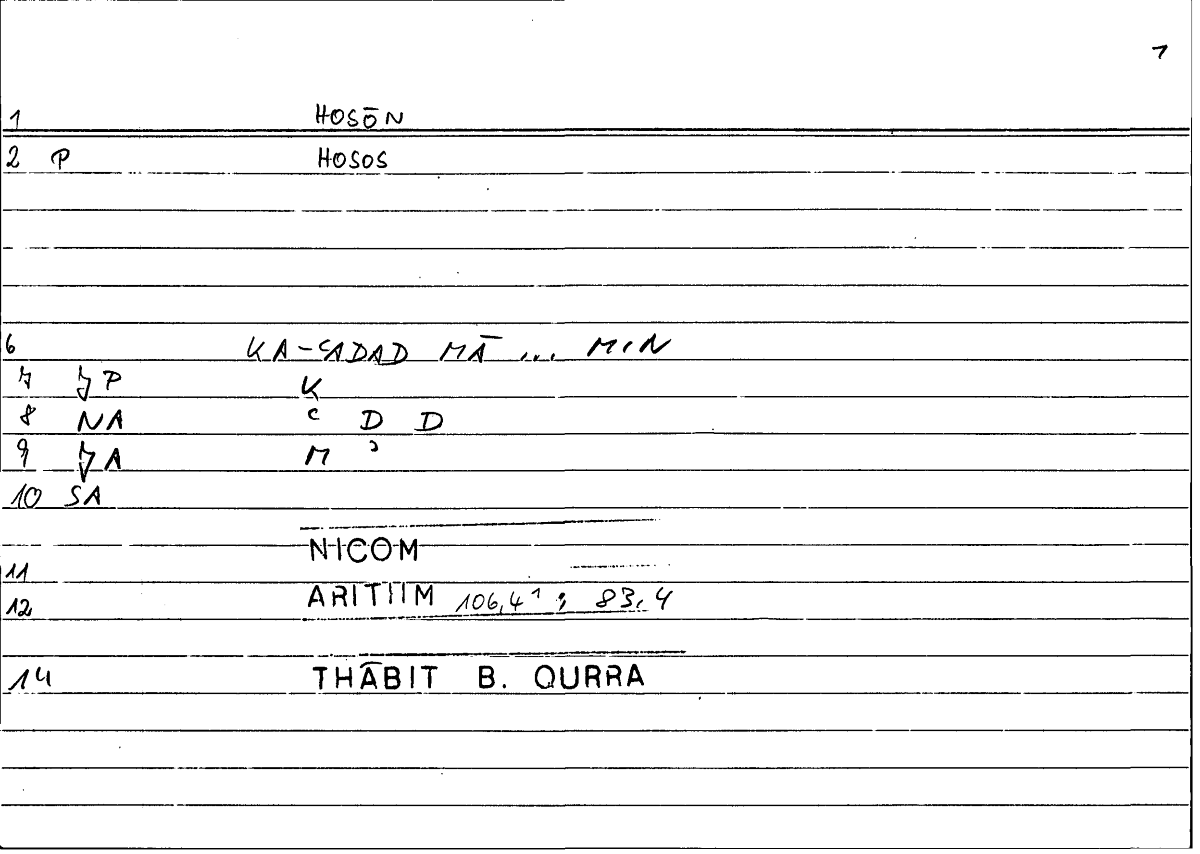 1
1 HOSŌN
2 P HOSOS
6 KA-ʿADAD MĀ ... MIN
7 JP K
8 NA ʿ D D
9 JA M ʾ
10 SA
NICOM
11
12 ARITHM 106,4¹ ; 83,4
14 THĀBIT B. QURRA